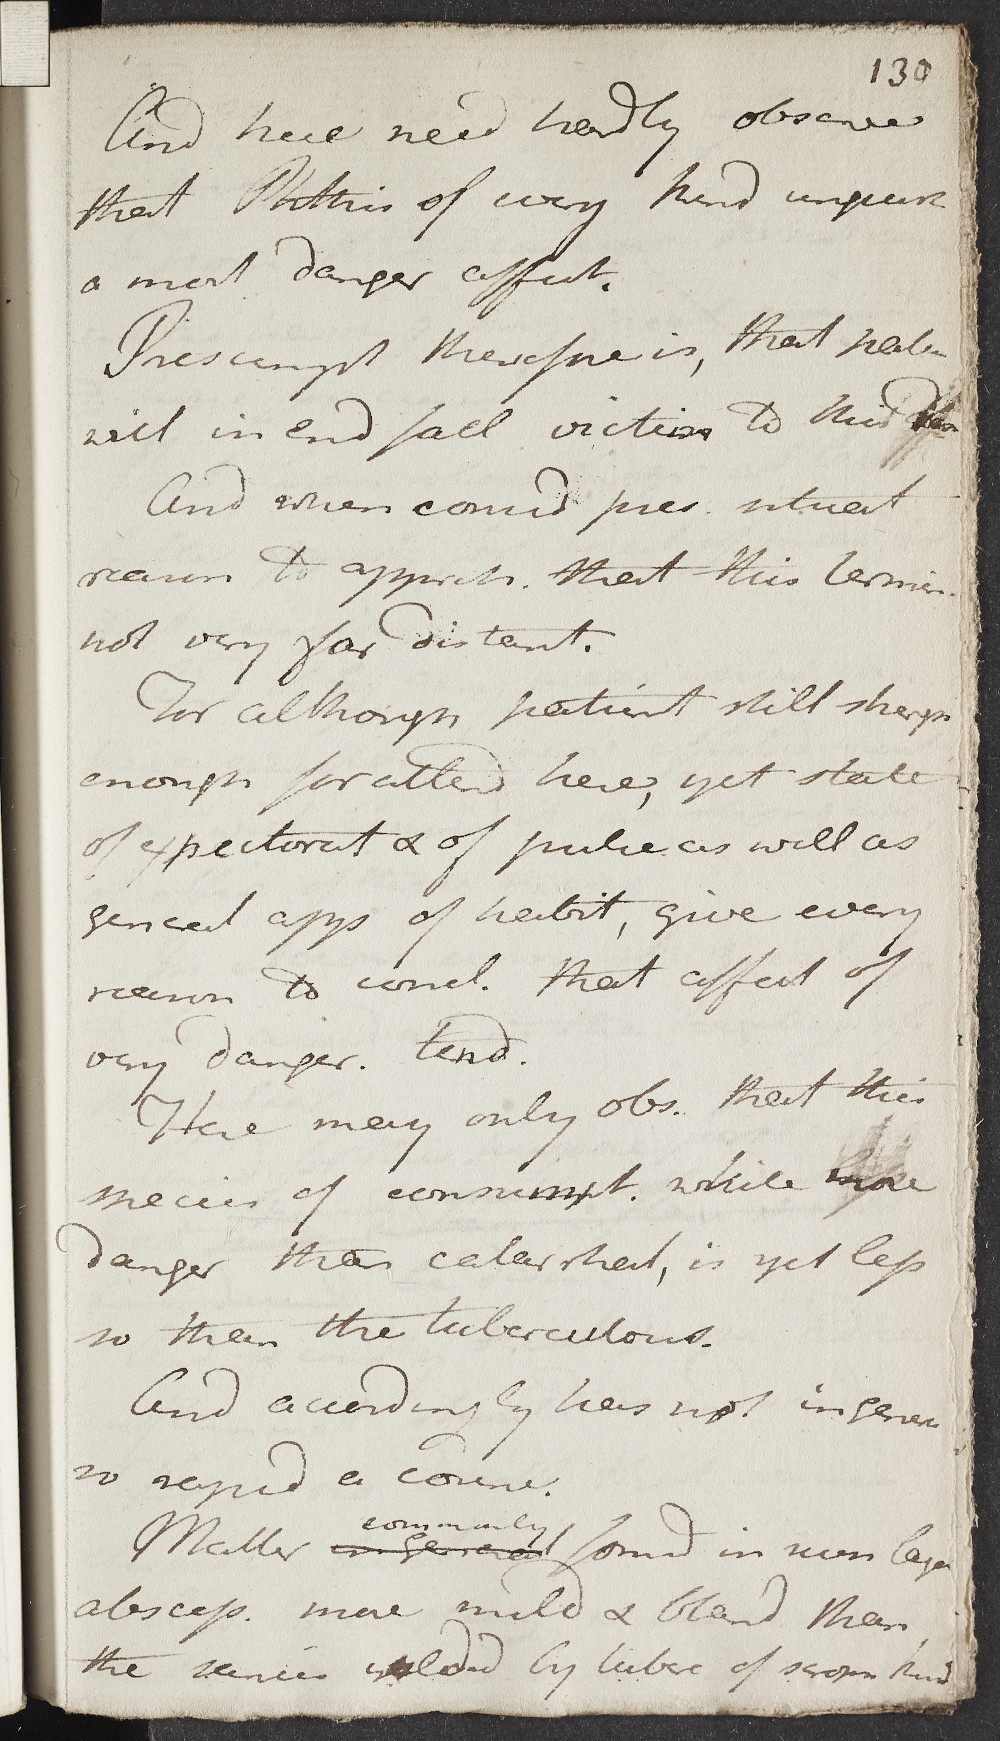 130
And here need hardly observe
that Phthisis of every kind
a most danger affect.
Presumpt therefore is, that patien
will in end fall victim to this
And when consid pres. situat
reason to appreh. that this termin.
not very far distant.
For although patient still
enough for attend here, yet state
of expectorat & of pulse as well as
general apps of habit, give every
reason to concl. that affect of
very danger. tend.
Here may only obs. that this
species of consumpt. while more
danger than catarrhal, is yet less
so than the tuberculous.
And accordingly has not in gener
so rapid a course.
commonly
Matter in general found in
abscess. more mild & bland than
the sanies by tuberc of kind